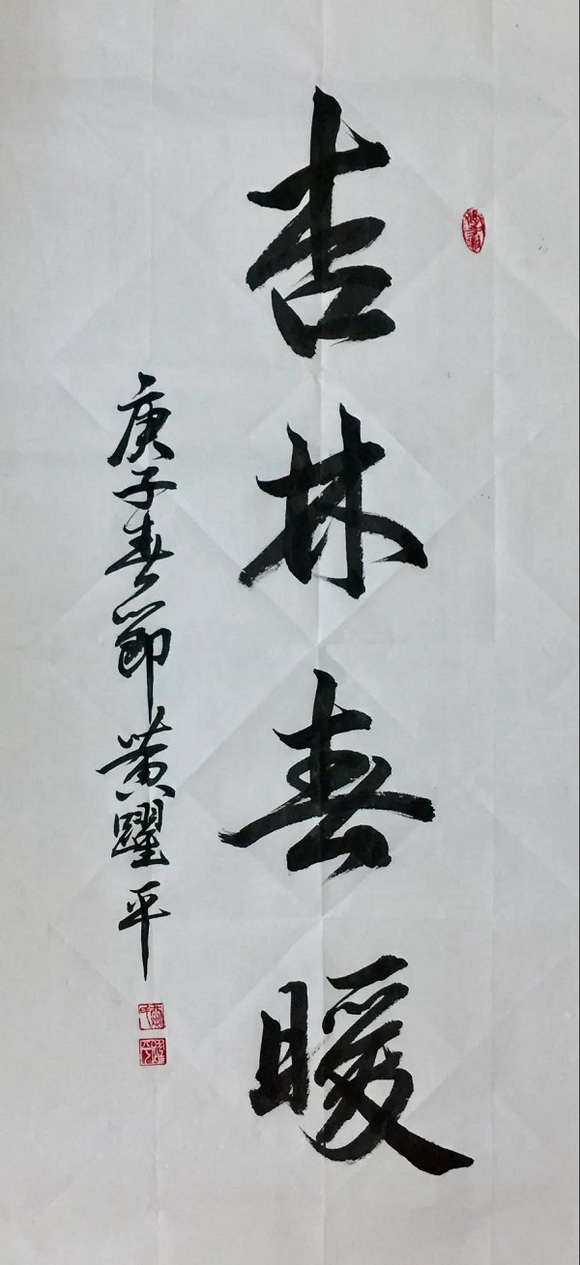 杏林春暖
庚子春節黄躍平